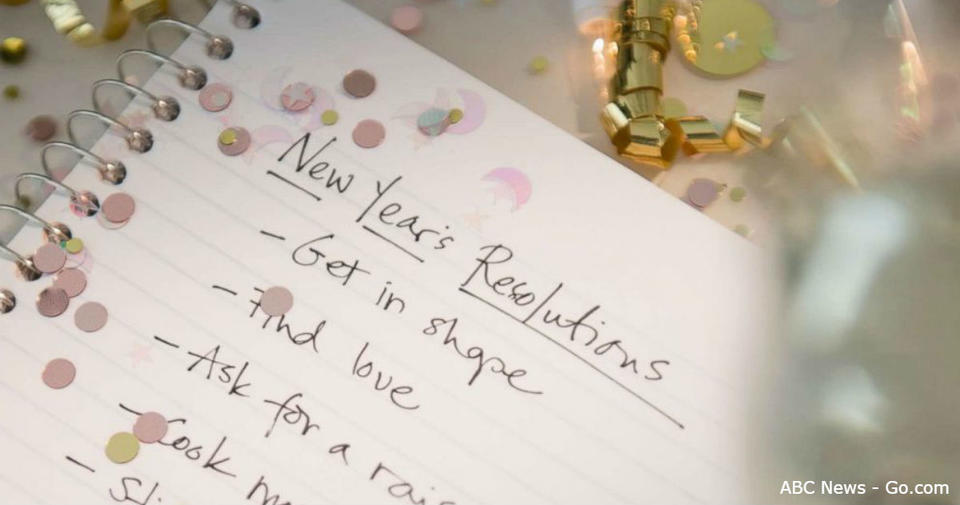 New Year's Resolutions
- Get in shape
- Find love
- Ask for a
- Cook
-
ABC News - Go.com